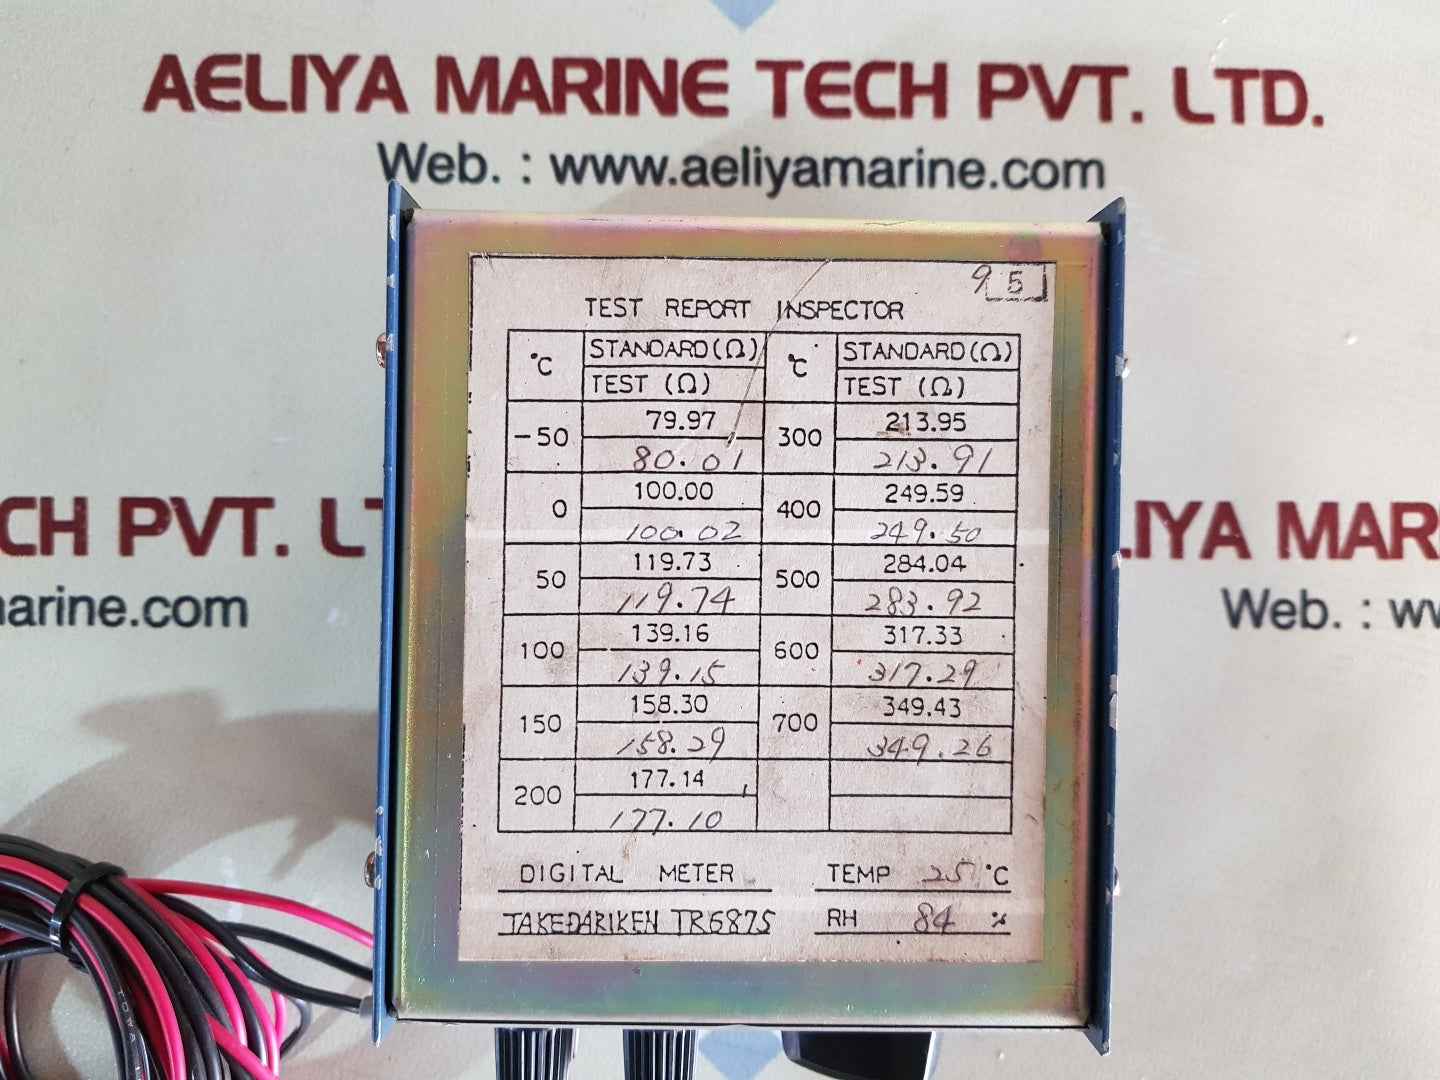 AELIYA MARINE TECH PVT. LTD.
Web. : www.aeliyamarine.com
CH PVT. LT
marine.com
LIYA MAR
Web. : ww
9 5
TEST REPORT INSPECTOR
°C STANDARD(Ω) TEST (Ω) °C STANDARD(Ω) TEST (Ω)
-50 79.97 300 213.95
80.01 213.91
0 100.00 400 249.59
100.02 249.50
50 119.73 500 284.04
119.74 283.92
100 139.16 600 317.33
139.15 317.29
150 158.30 700 349.43
158.29 349.26
200 177.14
177.10
DIGITAL METER TEMP 25 °C
TAKEDARIKEN TR6875 RH 84 %